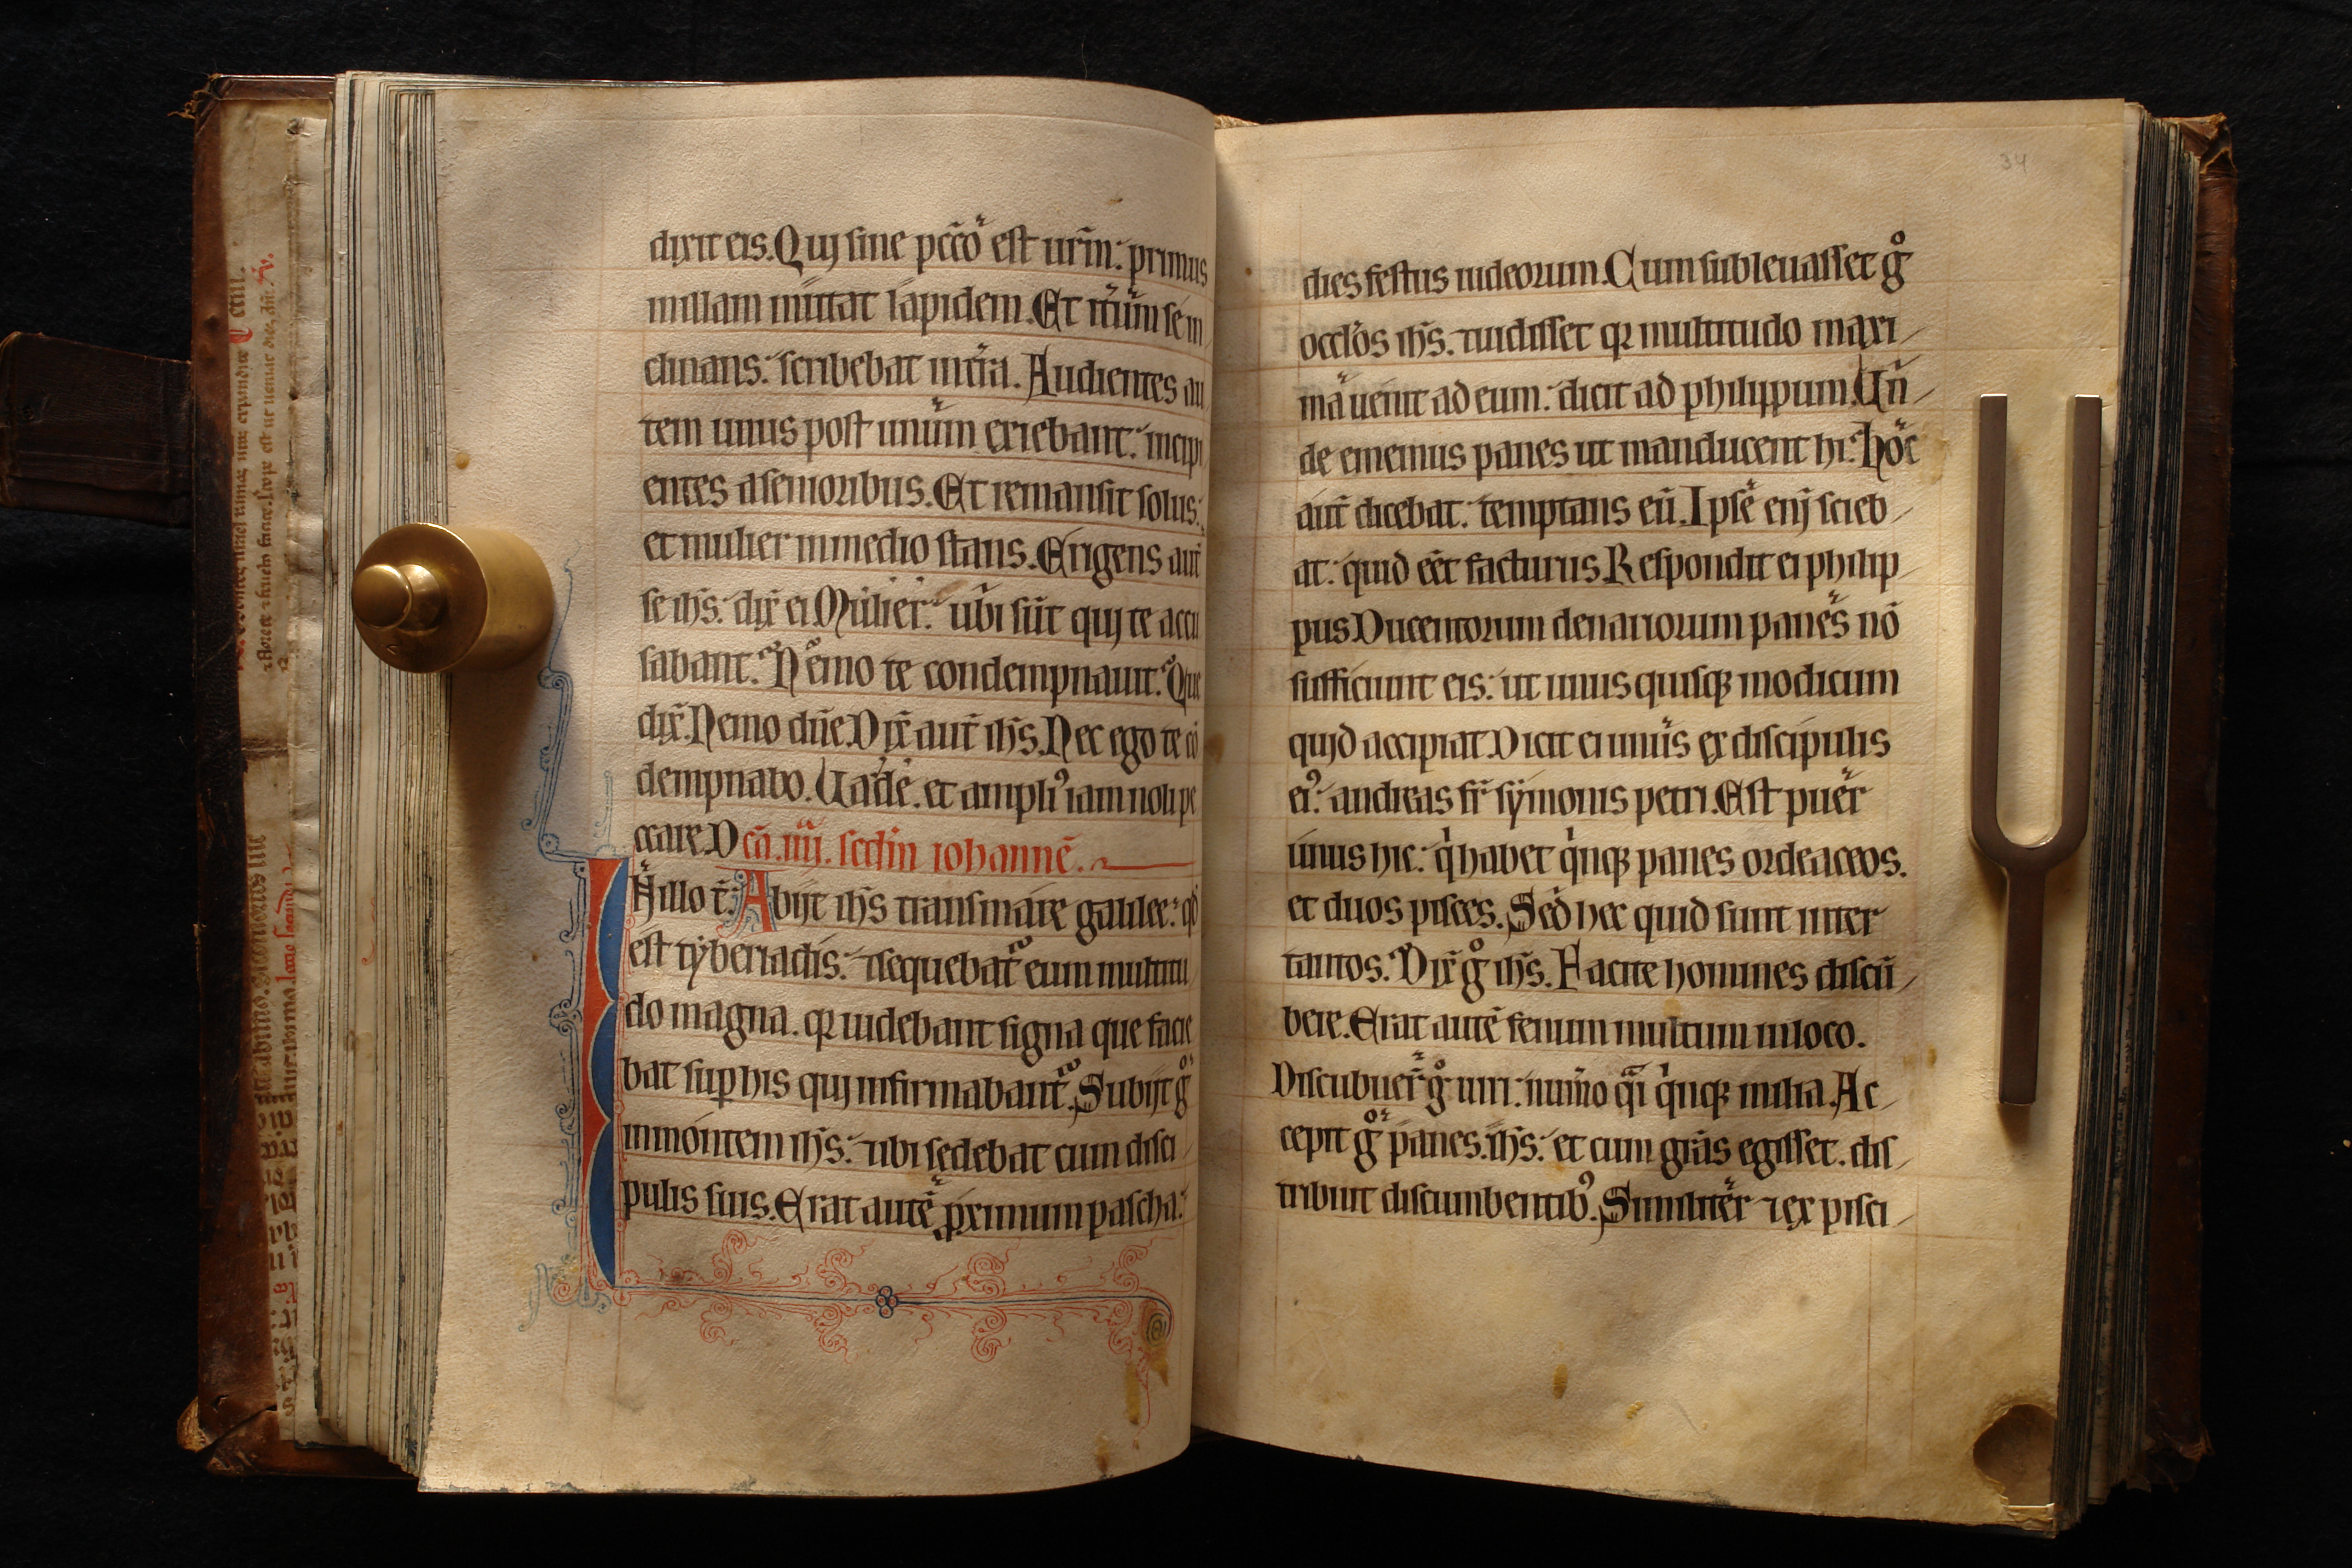 dixit eis. Qui sine pcc̄o est ur̄m: primus
in illam mittat lapidem. Et it̄um se in
clinans: scribebat in tr̄a. Audientes au
tem unus post unum exiebant: incipi
entes a senioribus. Et remansit solus:
et mulier in medio stans. Erigens aut̄
se ih̄s: dix̄ ei. Mulier: ubi sūt qui te accu
sabant. Nemo te condempnauit. Que
dix̄. Nemo dn̄e. Dix̄ aut̄ ih̄s. Nec ego te cō
dempnabo. Uade. et ampliꝰ iam noli pe
ccare. Dc̄a. iiij. sec̄dm iohannē.
In illo t̄. Abijt ih̄s trans mare galilee: qd̄
est tyberiadis: ⁊ sequebat̄ eum multitu
do magna. qꝛ uidebant signa que facie
bat suꝑ his qui infirmabant̄. Subijt gͦ
in montem ih̄s: ⁊ ubi sedebat cum disci
pulis suis. Erat autē ꝓximum pascha:
34
dies festus iudeorum. Cum subleuasset gͦ
occl̄os ih̄s. ⁊ uidisset qꝛ multitudo maxi
ma uenit ad eum: dicit ad philippum. Un̄
de ememus panes ut manducent hi. Hoc
aut̄ dicebat: temptans eū. Ipse enī scieb
at: quid eēt facturus. Respondit ei philip
pus. Ducentorum denariorum panes nō
sufficiunt eis: ut unus quisqꝫ modicum
quid accipiat. Dicit ei unus ex discipulis
eiꝰ: andreas fr̄ symonis petri. Est puer
unus hic: qⁱ habet qⁱnqꝫ panes ordeaceos.
et duos pisces. Sed hec quid sunt inter
tantos. Dix̄ gͦ ih̄s. Facite homines discū
bere. Erat autē fenum multum in loco.
Discubuer̄ gͦ uiri: num̄o qͣi qⁱnqꝫ milia. Ac
cepit gͦ panes. ih̄s: et cum gr̄as egisset. dis
tribuit discumbentibꝰ. Similiter ⁊ ex pisci